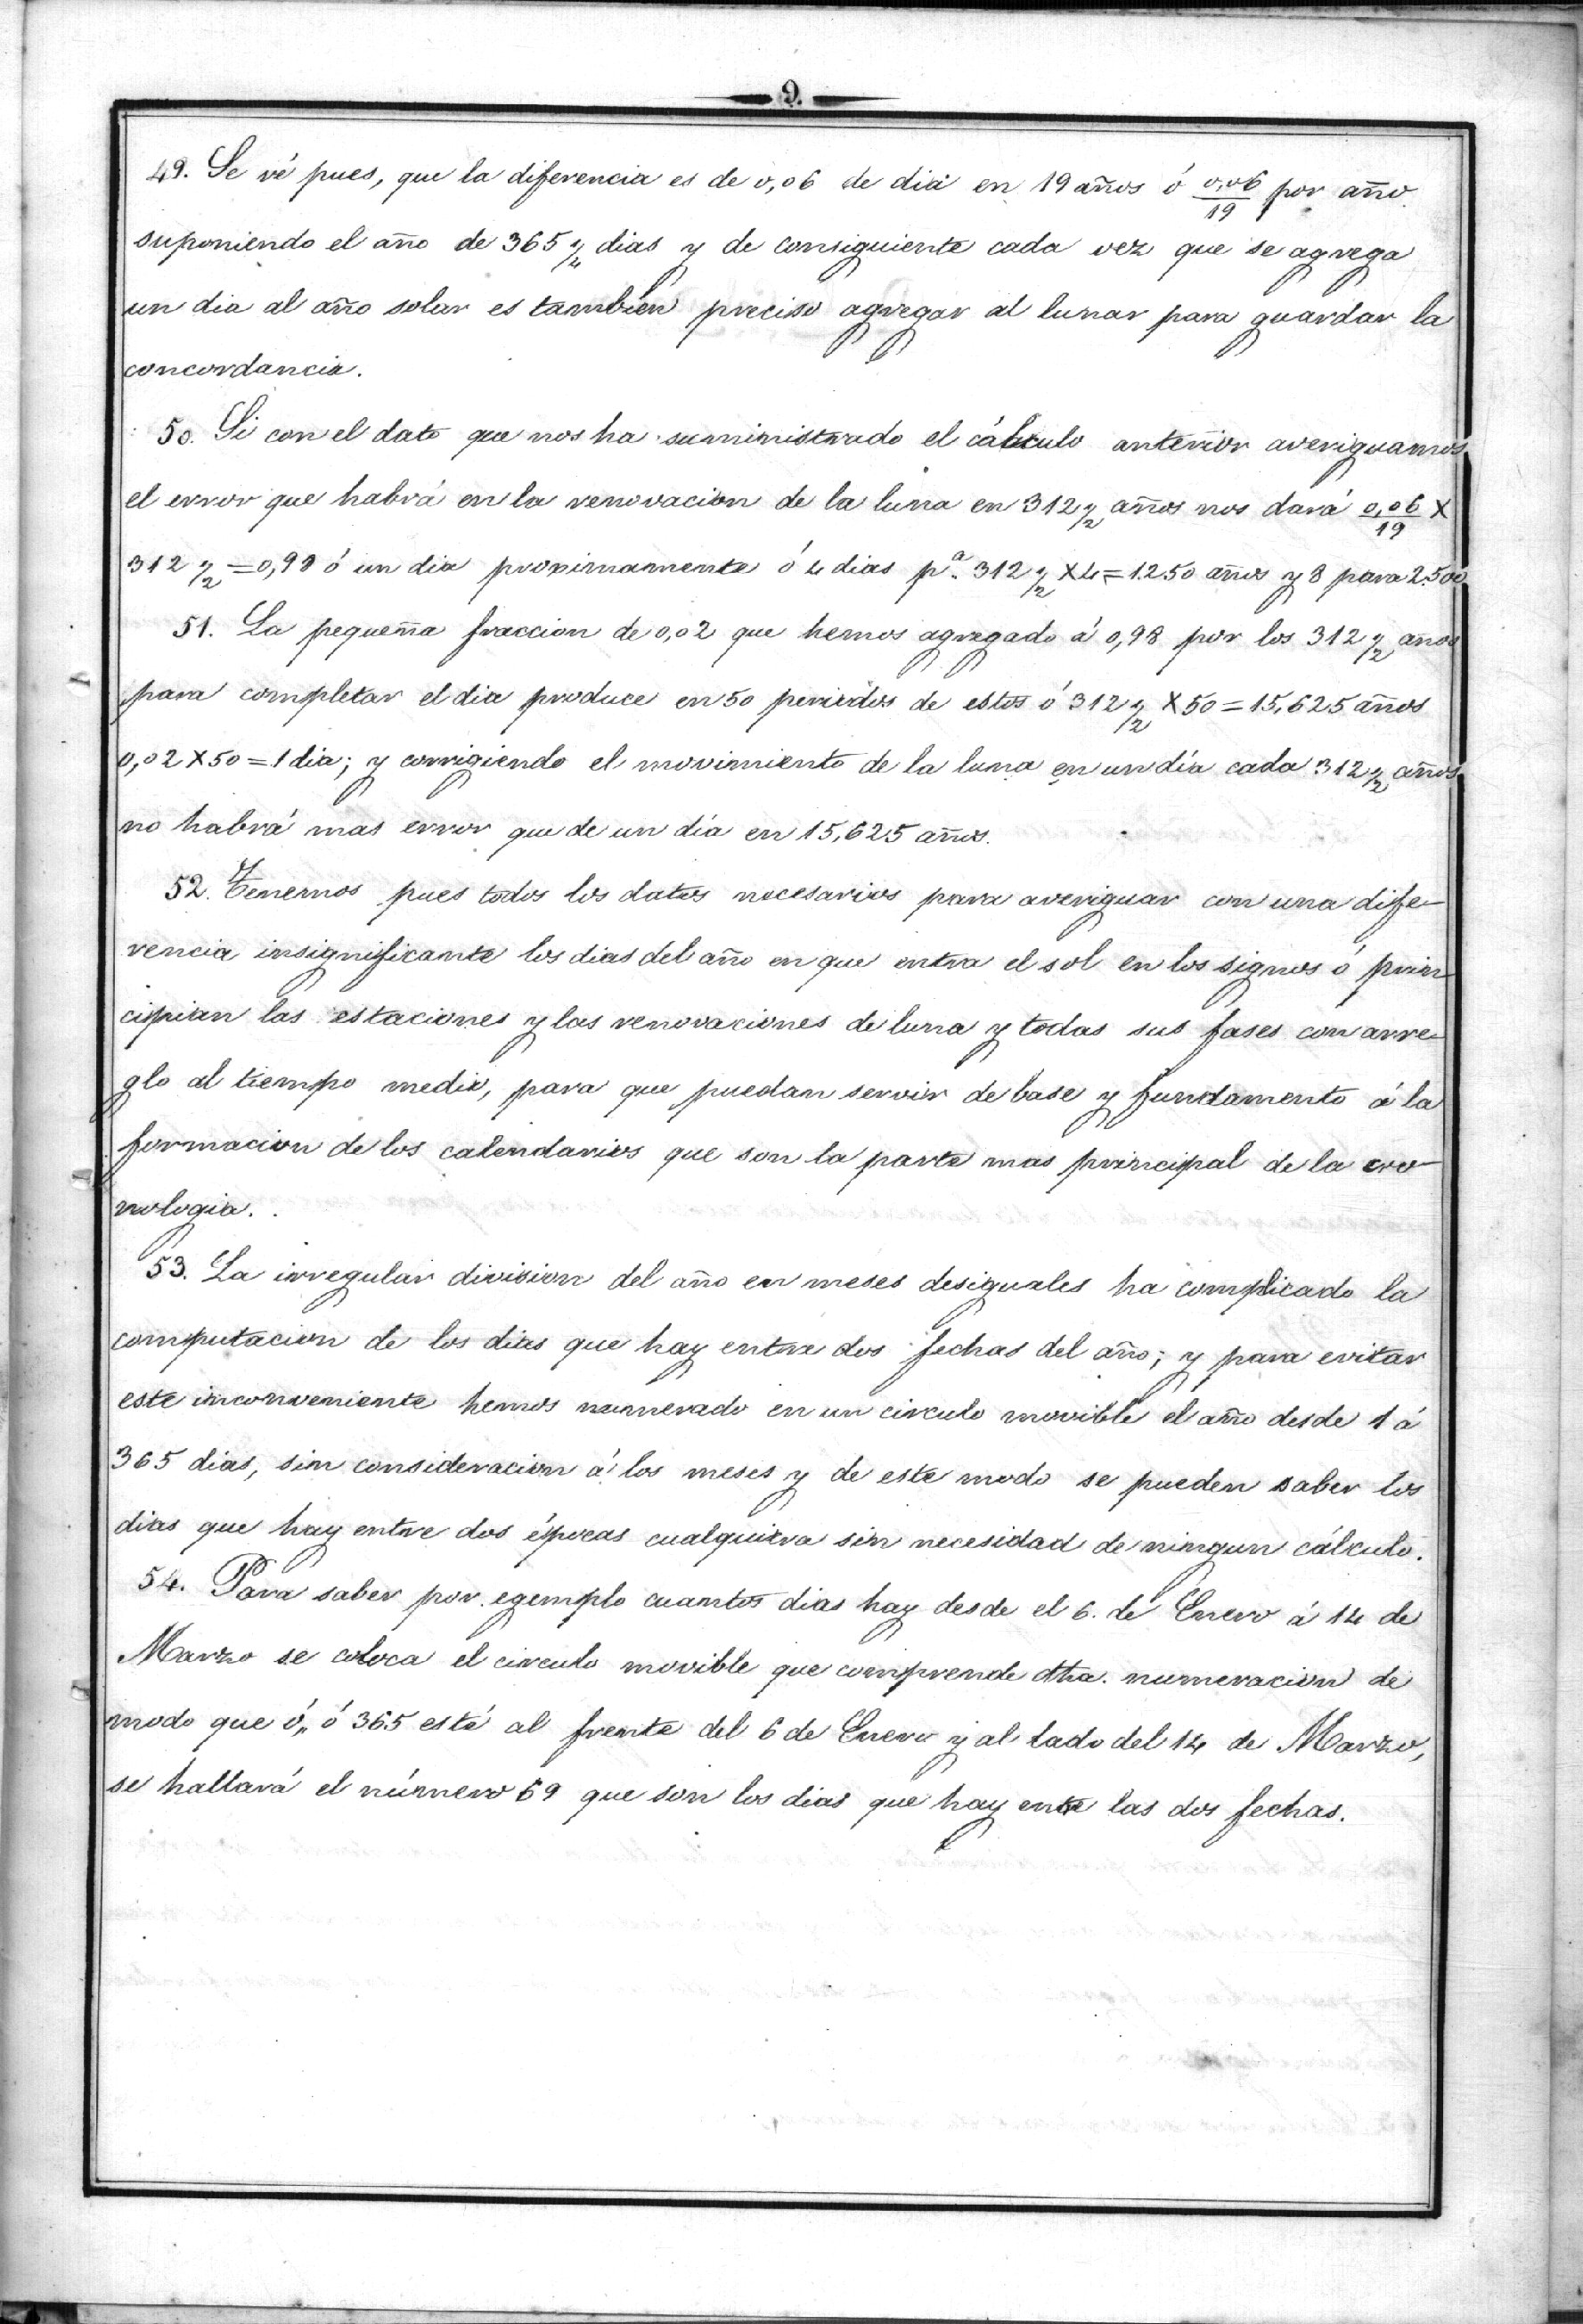 9.
49. Se vé pues, que la diferencia es de 0,06 de dia en 19 años ó 0,06/19 por año
suponiendo el año de 365 1/4 dias y de consiguiente cada vez que se agrega
un dia al año solar es tambien preciso agregar al lunar para guardar la
concordancia.
50. Si con el dato que nos ha suministrado el cálculo anterior averiguamos
el error que habrá en la renovacion de la luna en 312 1/2 años nos dará 0,06/19 X
312 1/2 = 0,98 ó un dia proximamente ó 4 dias pª. 312 1/2 X 4 = 1.250 años y 8 para 2.500
51. La pequeña fraccion de 0,02 que hemos agregado á 0,98 por los 312 1/2 años
para completar el dia produce en 50 periodos de estos ó 312 1/2 X 50 = 15,625 años
0,02 X 50 = 1 dia; y corrigiendo el movimiento de la luna en un día cada 312 1/2 años
no habrá mas error que de un día en 15,625 años.
52. Tenemos pues todos los datos necesarios para averiguar con una dife-
rencia insignificante los dias del año en que entra el sol en los signos ó prin-
cipian las estaciones y las renovaciones de luna y todas sus fases con arre-
glo al tiempo medio, para que puedan servir de base y fundamento á la
formacion de los calendarios que son la parte mas principal de la cro-
nologia.
53. La irregular division del año en meses desiguales ha complicado la
computacion de los dias que hay entre dos fechas del año; y para evitar
este inconveniente hemos numerado en un circulo movible el año desde 1 á
365 dias, sin consideracion á los meses y de este modo se pueden saber los
dias que hay entre dos épocas cualquiera sin necesidad de ningun cálculo.
54. Para saber por egemplo cuantos dias hay desde el 6. de Enero á 14 de
Marzo se coloca el circulo movible que comprende dha. numeracion de
modo que 0,, ó 365 esté al frente del 6 de Enero y al lado del 14 de Marzo,
se hallará el número 69 que son los dias que hay entre las dos fechas.